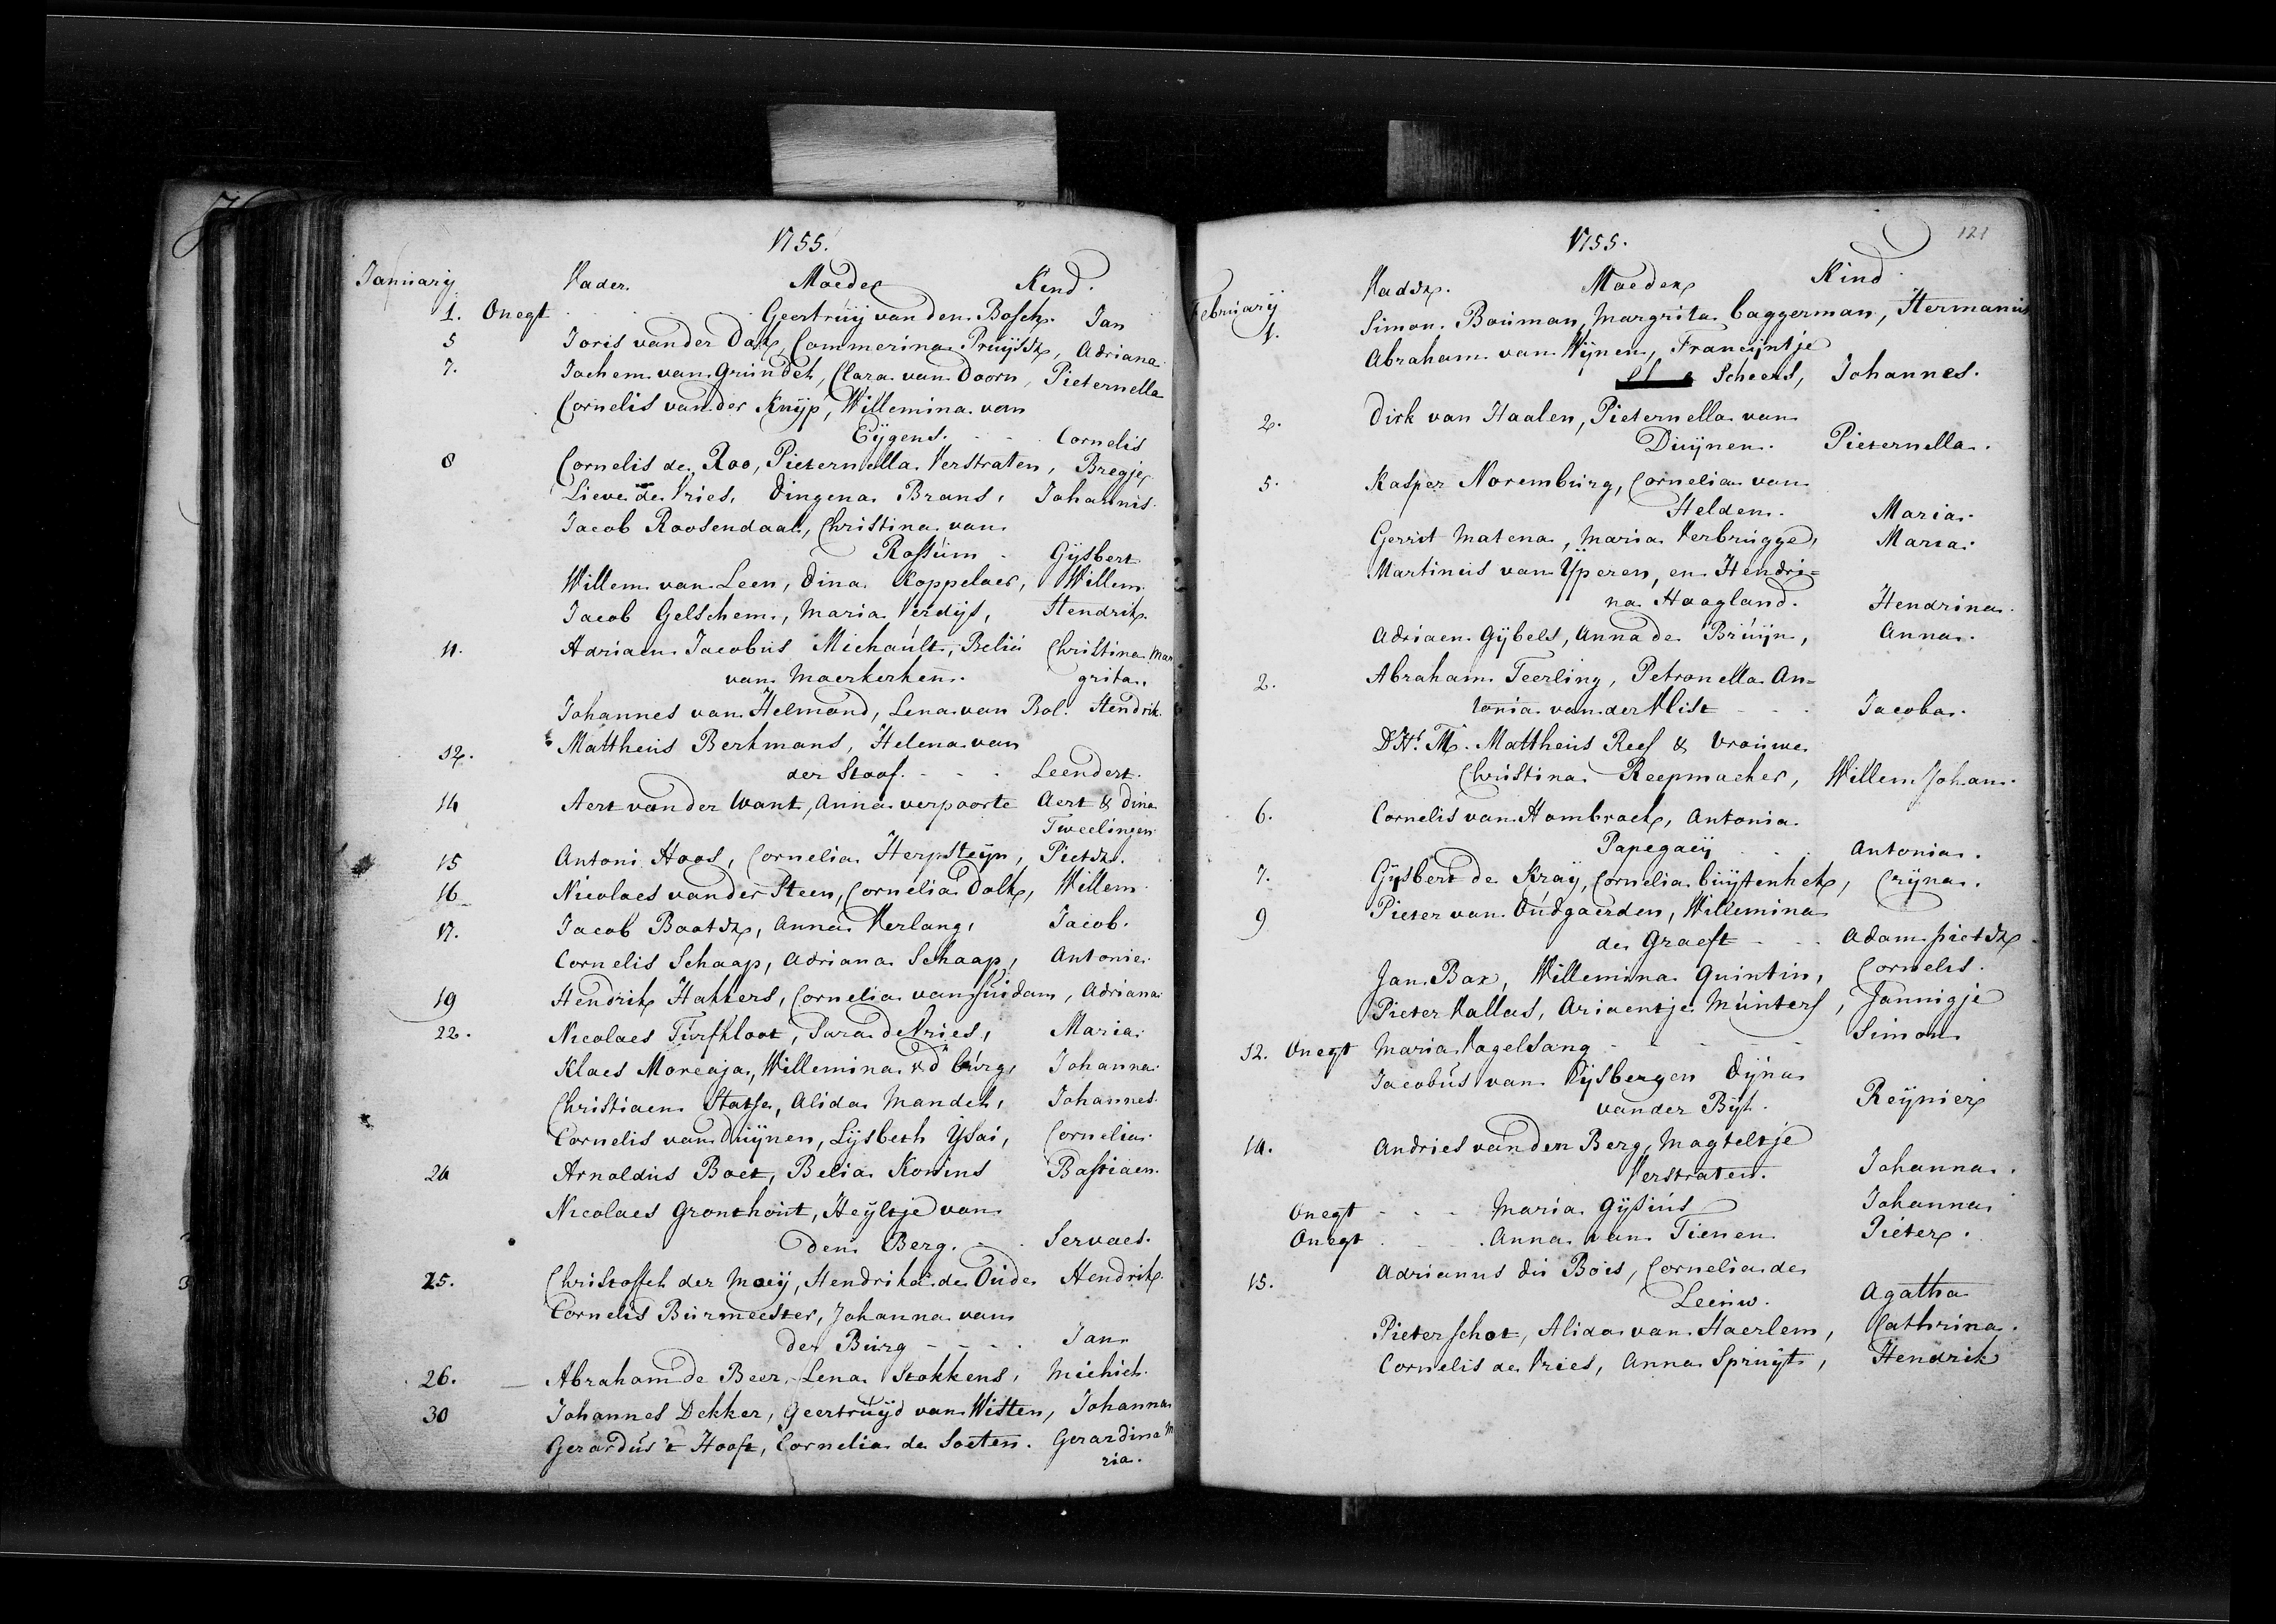 1755.
January Vader. Moeder Kind.
1. Onegt Geertruy van den Bosch. Jan
5 Joris vander Dak, Commerina Pruyssr, Adriana
7. Jachem van Grundel, Clara van Doorn, Pieternella
Cornelis van der Knyp, Willemina van
Eygens. Cornelis
8 Cornelis de Roo, Pieternella Verstraten, Bregje
Lieve de Vries, Dingena Brans, Johannis.
Jacob Roosendaal, Christina van
Rossum - Gysbert
Willem van Leen, Dina Koppelaer, Willem
Jacob Gelschem, Maria Verdys, Hendrik
11. Adriaen Jacobus Michault, Belia Christina Mar
van Maerkerken. grita.
Johannes van Helmond, Lena van Bol. Hendrik.
12. Mattheus Berkmans, Helena van
der Stoof. - - . Leendert.
14 Aert van der Want, Anna verpoorte Aert & Dina
Tweelingen
15 Antoni Hoos, Cornelia Herpsteyn, Pieter.
16 Nicolaes vander Steen, Cornelia Dolk, Willem
17. Jacob Baatr, Anna Verlang, Jacob.
Cornelis Schaap, Adriana Schaap, Antonie
19 Hendrik Hakkers, Cornelia van Suidam, Adriana
22. Nicolaes Turfkloot, Sara de Vries, Maria
Klaes Moreaja, Willemina vd burg, Johanna
Christiaen Statse, Alida Mandel, Johannes
Cornelis van Duynen, Lysbeth Ysai, Cornelia
24 Arnoldus Boet, Belia Konins Bastiaen
Nicolaes Gronthout, Heyltje van
den Berg. - . Servaes.
25. Christoffel der Moey, Hendrika de Oude Hendrik.
Cornelis Burmeester, Johanna van
der Burg - - - . Jan
26. Abraham de Beer, Lena Stokkens, Michiel.
30 Johannes Dekker, Geertruyd van Witten, Johanna
Gerardus 't Hooft, Cornelia de Soeten. Gerardina M
ria.
121
1755.
February Vader. Moeder Kind
1. Simon Bouman, Margrita Caggerman, Hermanus
Abraham van Wynen, Francyntje
Scheers, Johannes.
2. Dirk van Haalen, Pieternella van
Duynen. Pieternella.
5. Kasper Noremburg, Cornelia van
Helden. Maria.
Gerrit Matena, Maria Verbrugge, Maria.
Martinus van Yperen, en Hendri=
na Hoogland. Hendrina.
Adriaen Gybels, Anna de Bruyn, Anna.
2. Abraham Teerling, Petronella An=
tonia van der Klist - - Jacoba.
DHr. Mr. Mattheus Rees & Vrouwe
Christina Reepmacher, Willem Johan.
6. Cornelis van Hombroek, Antonia
Papegaey . . . Antonia.
7. Gysbert de Kray, Cornelia buytenhek, Cryna.
9 Pieter van Oudgaerden, Willemina
de Graeft - . . Adam Pieter
Jan Bax, Willemina Quintin, Cornelis.
Pieter Kallas, Ariaentje Munters, Jannigje
12. Onegt Maria Vogelsang - - - - Simon
Jacobus van Rysbergen Dyna
vander Byl. Reynier
14. Andries van den Berg, Magteltje
Verstraten. Johanna.
Onegt - - - Maria Gysius Johanna
Onegt . Anna van Tienen Pieter.
15. Adrianus du Bois, Cornelia de
Leeuw. Agatha
Pieter Schot, Alida van Haerlem, Cathrina.
Cornelis de Vries, Anna Spruyt, Hendrik